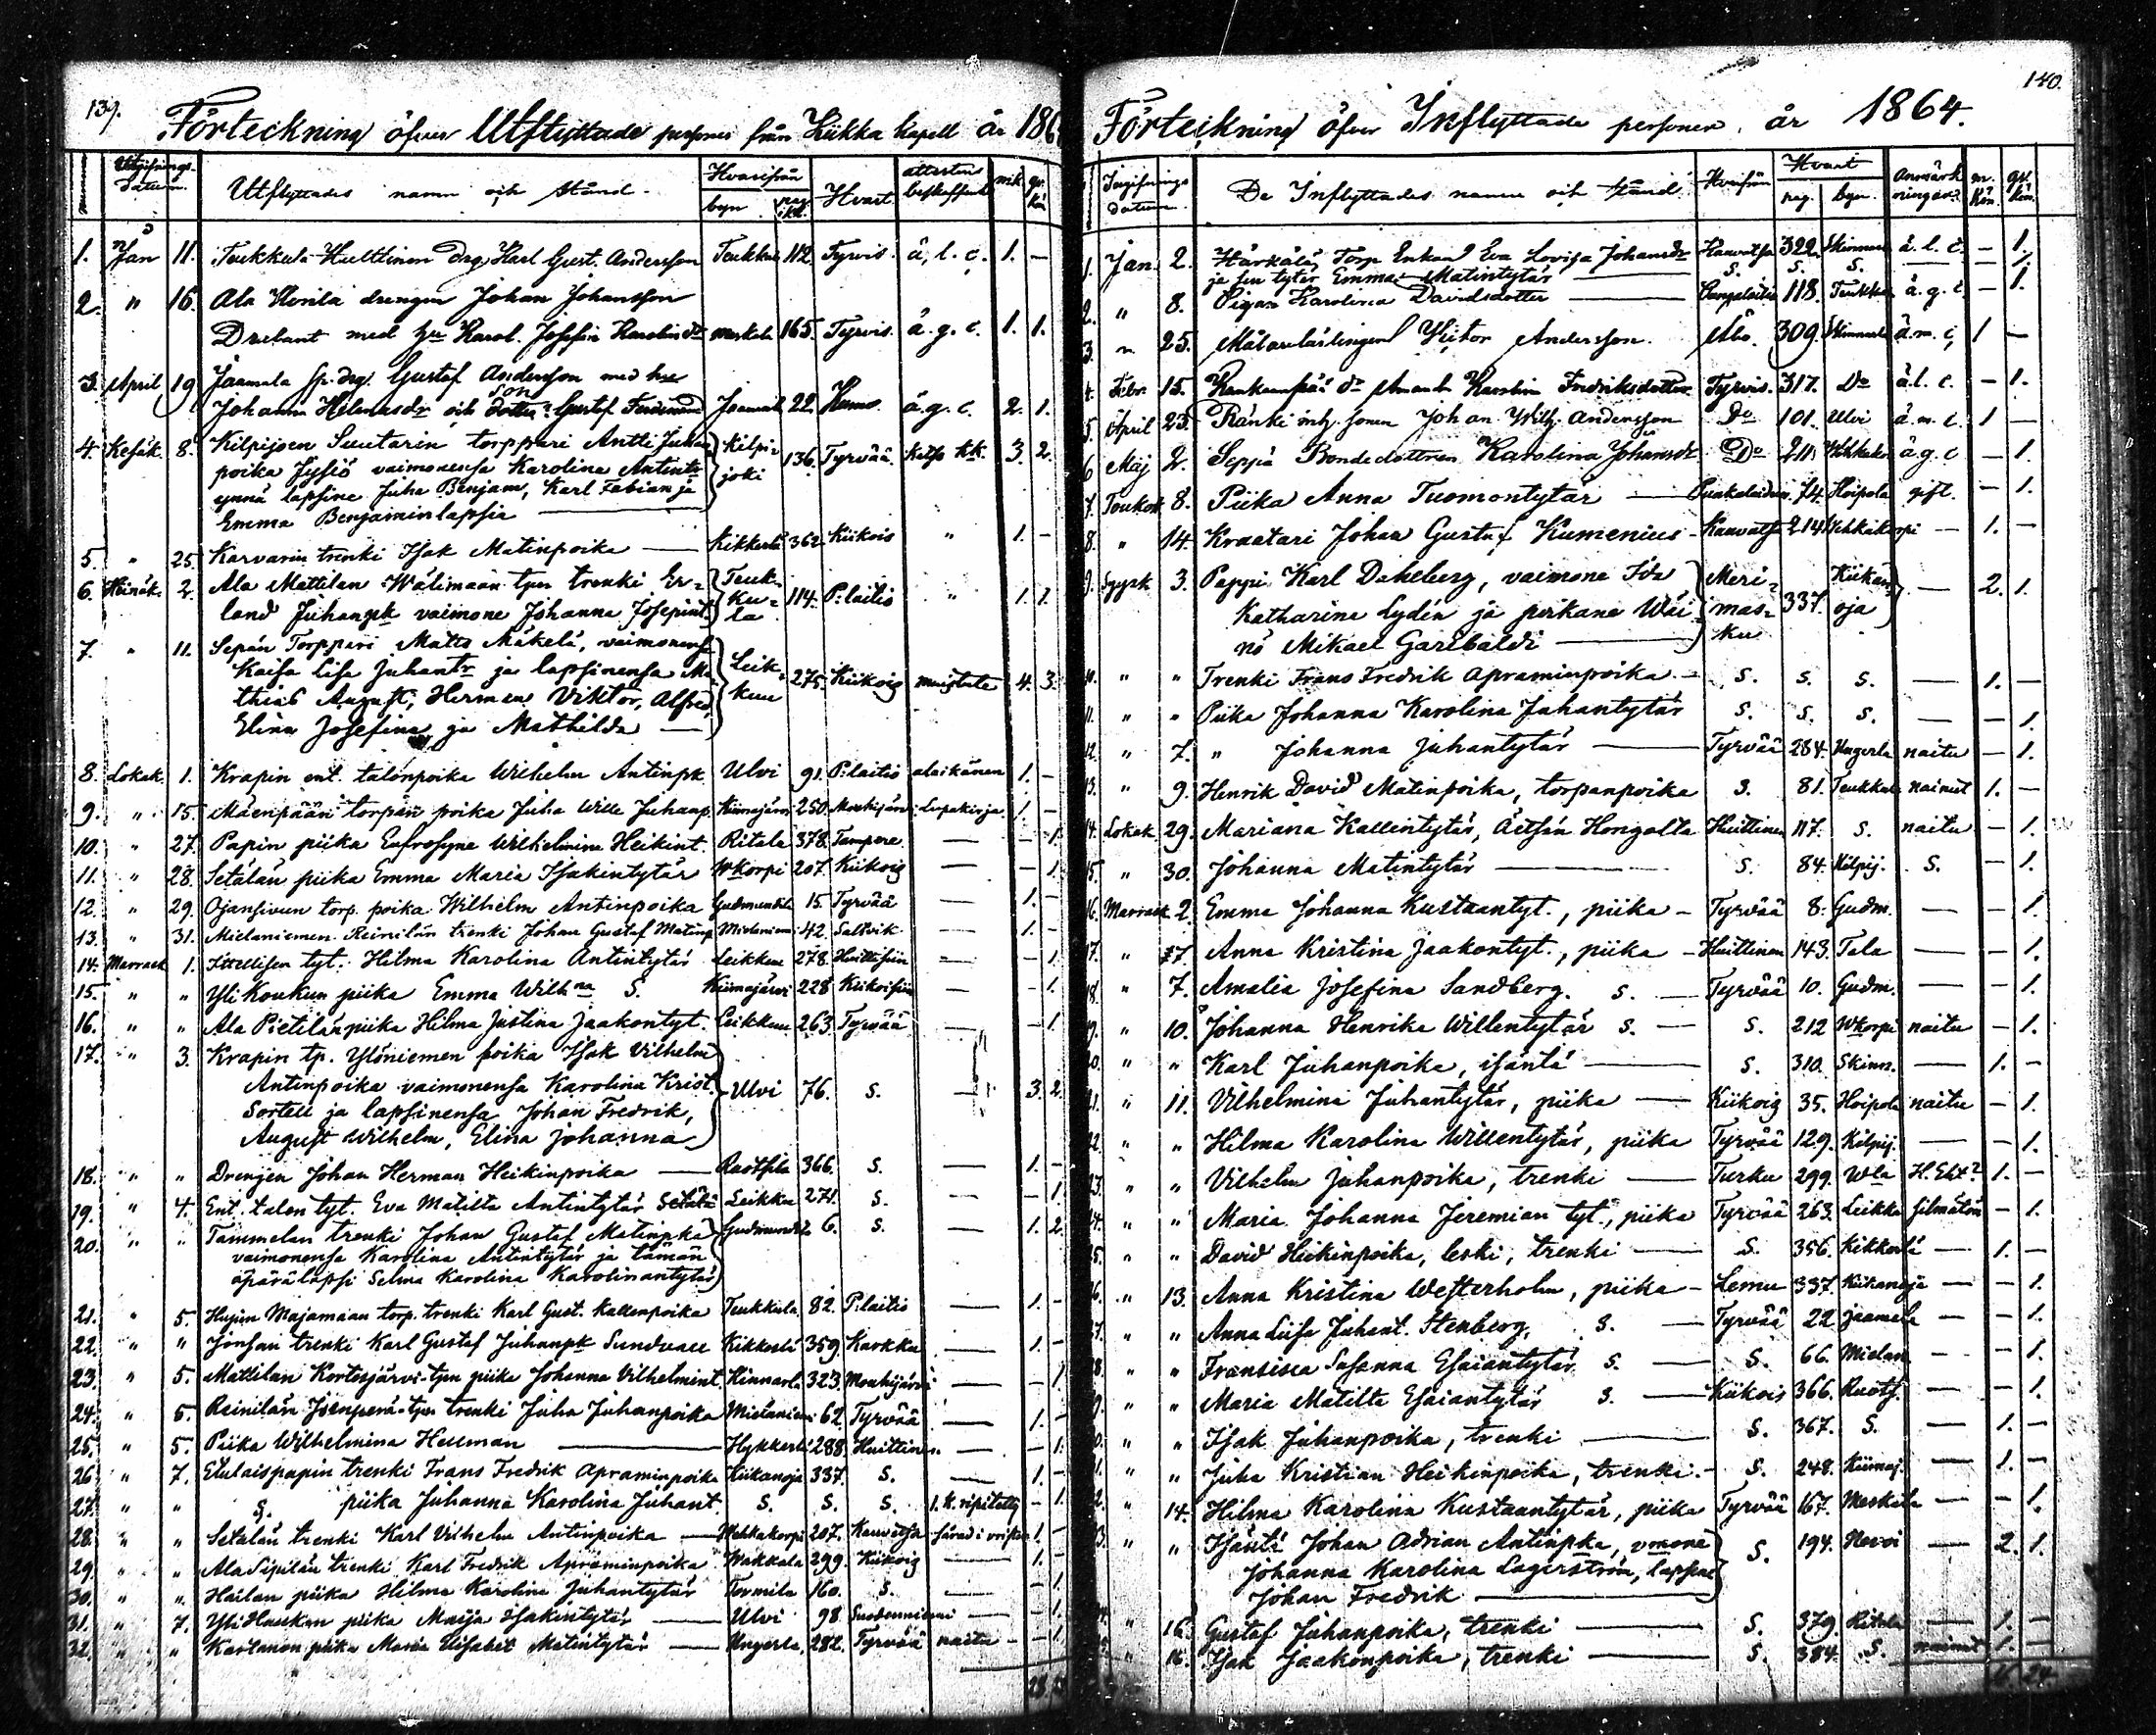 139.
Förteckning öfver Utflyttade personer från Kiikka kapell år 186
Utgifnings Datum.
Utflyttades namn och stånd.
Hvarifrån
byn
Hvart
attestens beskaffenh
mk
qv. kön
1. Jan 11. Teukkula Hulttinen drg. Karl Gust. Andersson Teukkul 112. Tyrvis. ä. l. c. 1. —
2. " 16. Ala Horila drengen Johan Johansson
med hu Karol. Josefin Karolinsdr 165. Tyrvis. ä. g. c. 1. 1.
3. April 19 Jaamala sp. drg. Gustaf Andersson med hu
son
Johanna Helenasdr och dotter Gustaf Ferdinand Jaamal 22. ä. g. c. 2. 1.
4. Kesäk. 8. Kilpijoen Suutarin torppari Antti Juhan
poika vaimonensa Karolina Antinty Kilpi- 136. Tyrvää. kk. 3. 2.
ynnä lapsine Juha Benjam, Karl Fabian ja joki
Emma Benjaminlapsia —
5. " 25. Karvarin trenki Isak Matinpoika — Kikkerlä 362. Kiikois " 1. —
6. Heinäk. 2. Ala Mattilan Wälimaan tpn trenki Er- Teuk-
land Juhanpk vaimone Johanna Josefint. ku- 114. P:laitio " 1. 1.
la
7. " 11. Sepän Torppari Matts Mäkelä, vaimonensa
Kaisa Lisa Juhantr ja lapsinensa Ma- Leik- 275. Kiikois muistete 4. 3.
thias August, Herman Viktor, Alfred, kuu
Elina Josefina ja Mathilda —
8. Lokak. 1. Krapin ent. talonpoika Wilhelm Antinpk. Ulvi 91. P:laitio alaikänen 1. -
9. " 15. Mäenpään torpan poika Juha Wille Juhanp. Kiimajärvi 250. Mouhijärvi Lupakirja 1. -
10. " 27. Papin piika Eufrosyne Wilhelmina Heikint. Ritala 378. Tampere — - 1.
11. " 28. Setälän piika Emma Maria Isakintytär Wkorpi 207. Kiikois — - 1.
12. " 29. Ojansivun torp. poika Wilhelm Antinpoika Gudmundila 15. Tyrvää — 1. -
13. " 31. Mielaniemen Reinilän trenki Johan Gustaf Matinp Mielaniemi 42. Saltvik — 1. -
14. Marrask 1. tyt. Hilma Karolina Antintytär Leikkuu 278. Huittisiin — - 1.
15. " " Yli Koukun piika Emma Wilhna S. Kiimajärvi 228. Kiikoisiin — - 1.
16. " " Ala Pietilän piika Hilma Justina Jaakontyt. Leikkuu 263. Tyrvää — - 1.
17. " 3. Krapin tp. Ylöniemen poika Isak Vilhelm
Antinpoika vaimonensa Karolina Krist. Ulvi 76. S. — 3. 2.
Sortell ja lapsinensa Johan Fredrik,
August Wilhelm, Elina Johanna
18. " " Drenjen Johan Herman Heikinpoika — Ruotsila 366. S. — 1. -
19. " 4. Ent. talon tyt. Eva Matilta Antintytär Setälä Leikku 271. S. — - 1.
20. " " Tammelan trenki Johan Gustaf Matinpka Gudmundila 6. S. — 1. 2.
vaimonensa Karolina Antintytär ja tämän
äpärälapsi Selma Karolina Karolinantytär
21. " 5. Hujun Majamaan torp. trenki Karl Gust. Kallenpoika Teukkula 82. P:laitio — 1. -
22. " " Jonsan trenki Karl Gustaf Juhanpk Sundvall Kikkerlä 359. Karkku — 1. -
23. " 5. Mattilan Kortesjärvi tpn piika Johanna Vilhelmint. Kinnarla 323. Mouhijärvi — - 1.
24. " 5. Reinilän Joenperä tpn trenki Juha Juhanpoika Mielaniemi 62. Tyrvää — 1. -
25. " 5. Piika Wilhelmina Hellman — Hykkerlä 288. Huittinen — - 1.
26. " 7. Etulaispapin trenki Frans Fredrik Apraminpoika Kiikanoja 337. S. — 1. -
27. " " S. piika Juhanna Karolina Juhant S. S. S. 1. k. ripitetty - 1.
28. " " Setälän trenki Karl Vilhelm Antinpoika — Wehkakorpi 207. Kauvatsa 1. -
29. " " Ala Sipilän trenki Karl Fredrik Apraminpoika Wakkala 299. Kiikois — 1. -
30. " " Hailan piika Hilma Karolina Juhantytär Tormila 160. S. — - 1.
31. " 7. Yli Haukan piika Maija Isakintytär — Ulvi 98. Suodenniemi — - 1.
32. " " Kartanon piika Maria Elisabet Matintytär — Ungerla 282. Tyrvää naitu - - 1.
28.
140.
Förteckning öfver Inflyttade personer år 1864.
Ingifnings datum.
De Inflyttades namn och stånd.
Hvarifrån
Hvart
pag. byn.
Anmärkningar.
m. kön.
qv. kön.
1. Jan. 2. Härkälä, Torp Enkan Eva Lovisa Johansdr Kauvatsa 322. Skinnar ä. l. c. — 1.
ja sen tytär Emma Matintytär — S. S. S. 1.
2. " 8. Pigan Karolina Davidsdotter — 118. Teukku ä. g. c. — 1.
3. " 25. Målarelärlingen Viktor Andersson. Åbo. 309. ä. m. c. 1 —
4. Febr. 15. Karolin Fredriksdotter Tyrvis. 317. Do ä. l. c. — 1.
5. April 23. Ränki Johan Wilh. Andersson Do 101. Ulvi ä. m. c. 1 —
6. Maj 2. Seppä Bondedottren Karolina Johansdr Do 211. Wehkakor ä. g. c — 1.
7. Toukok 8. Piika Anna Tuomontytär — Punkalaidun. 74. Hoipola gift. — 1.
8. " 14. Kraatari Johan Gustaf Kumenius - Kauvatsa 214. Wehkakorpi — 1. —
9. Syysk 3. Pappi Karl Daheberg, vaimone Ida Meri- Kiikan-
Katharina Lydén ja poikane Wäi- mas- 337. oja — 2. 1.
nö Mikael Garibaldi — ku
10. " " Trenki Frans Fredrik Apraminpoika - S. S. S. — 1. —
11. " " Piika Johanna Karolina Juhantytär S. S. S. — — 1.
12. " 7. " Johanna Juhantytär — Tyrvää 284. Ungerla naitu — 1.
13. " 9. Henrik David Matinpoika, torpanpoika S. 81. Teukkula nainut 1. —
14. Lokak. 29. Mariana Kallentytär, Äetsän Hongolta Huittinen 117. S. naitu — 1.
15. " 30. Johanna Matintytär — S. 84. Kilpij. S. — 1.
16. Marrask 2. Emma Johanna Kustaantyt., piika — Tyrvää 8. Gudm. — — 1.
17. " 7. Anna Kristina Jaakontyt., piika — Huittinen 143. Tala — — 1.
18. " 7. Amalia Josefina Sandberg. S. — Tyrvää 10. Gudm. — — 1.
19. " 10. Johanna Henrika Willentytär S. — S. 212 Wkorpi naitu — 1.
20. " " Karl Juhanpoika, isäntä — S. 310. Skinn. — 1. —
21. " 11. Vilhelmina Juhantytär, piika — Kiikois 35. Hoipola naitu — 1.
22. " " Hilma Karolina Willentytär, piika Tyrvää 129. Kilpij. — — 1.
23. " " Vilhelm Juhanpoika, trenki — Turku 299. W:la 1. —
24. " " Maria Johanna Jeremian tyt., piika Tyrvää 263. Leikku silmätön — 1.
25. " " David Heikinpoika, leski, trenki — S. 356. Kikkerlä — 1. —
26. " 13. Anna Kristina Westerholm, piika — Lemu 337. Kiikanoja — — 1.
27. " " Anna Liisa Juhant. Stenberg, S. — Tyrvää 22 Jaamala — — 1.
28. " " Fransiska Susanna Esaiantytär S. — S. 66. Mielan — — 1.
29. " " Maria Matilta Esaiantytär S. — Kiikois 366. Ruots. — — 1.
30. " " Isak Juhanpoika, trenki — S. 367. S. — 1. —
31. " " Juha Kristian Heikinpoika, trenki. — S. 248. Kiimaj. — 1. —
32. " 14. Hilma Karolina Kustaantytär, piika Tyrvää 167. Meskala — — 1.
33. " " Isäntä Johan Adrian Antinpka, vmone S. 194. Hevoi — 2. 1.
Johanna Karolina Lagerström, lapsine
Johan Fredrik —
" 16. Gustaf Juhanpoika, trenki — S. 379. Ritala — 1. —
" 16. Isak Jaakonpoika, trenki — S. 384. S. nainut 1. —
24.